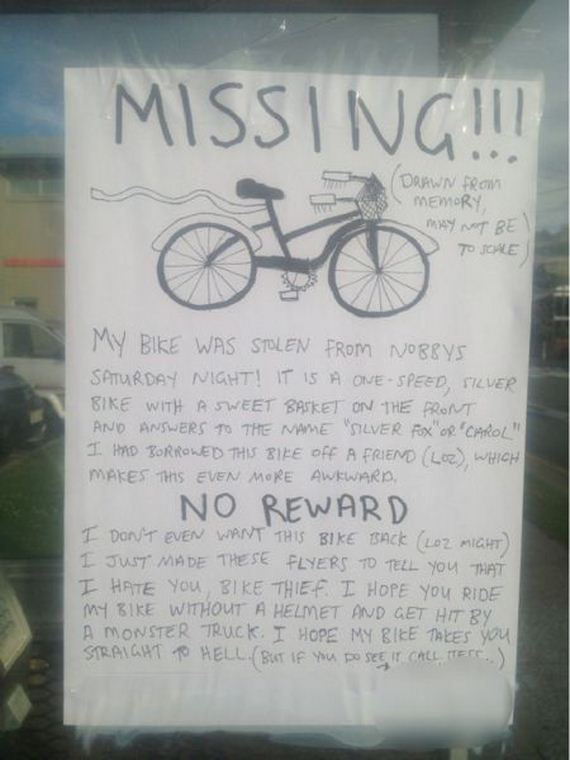 MISSING!!!
(DRAWN FROM
MEMORY,
MAY NOT BE
TO SCALE)
MY BIKE WAS STOLEN FROM NOBBYS
SATURDAY NIGHT! IT IS A ONE-SPEED, SILVER
BIKE WITH A SWEET BASKET ON THE FRONT
AND ANSWERS TO THE NAME "SILVER FOX" OR "CAROL"
I HAD BORROWED THIS BIKE OFF A FRIEND (LOZ), WHICH
MAKES THIS EVEN MORE AWKWARD.
NO REWARD
I DON'T EVEN WANT THIS BIKE BACK (LOZ MIGHT)
I JUST MADE THESE FLYERS TO TELL YOU THAT
I HATE YOU, BIKE THIEF. I HOPE YOU RIDE
MY BIKE WITHOUT A HELMET AND GET HIT BY
A MONSTER TRUCK. I HOPE MY BIKE TAKES YOU
STRAIGHT TO HELL. (BUT IF YOU DO SEE IT CALL TESS..)